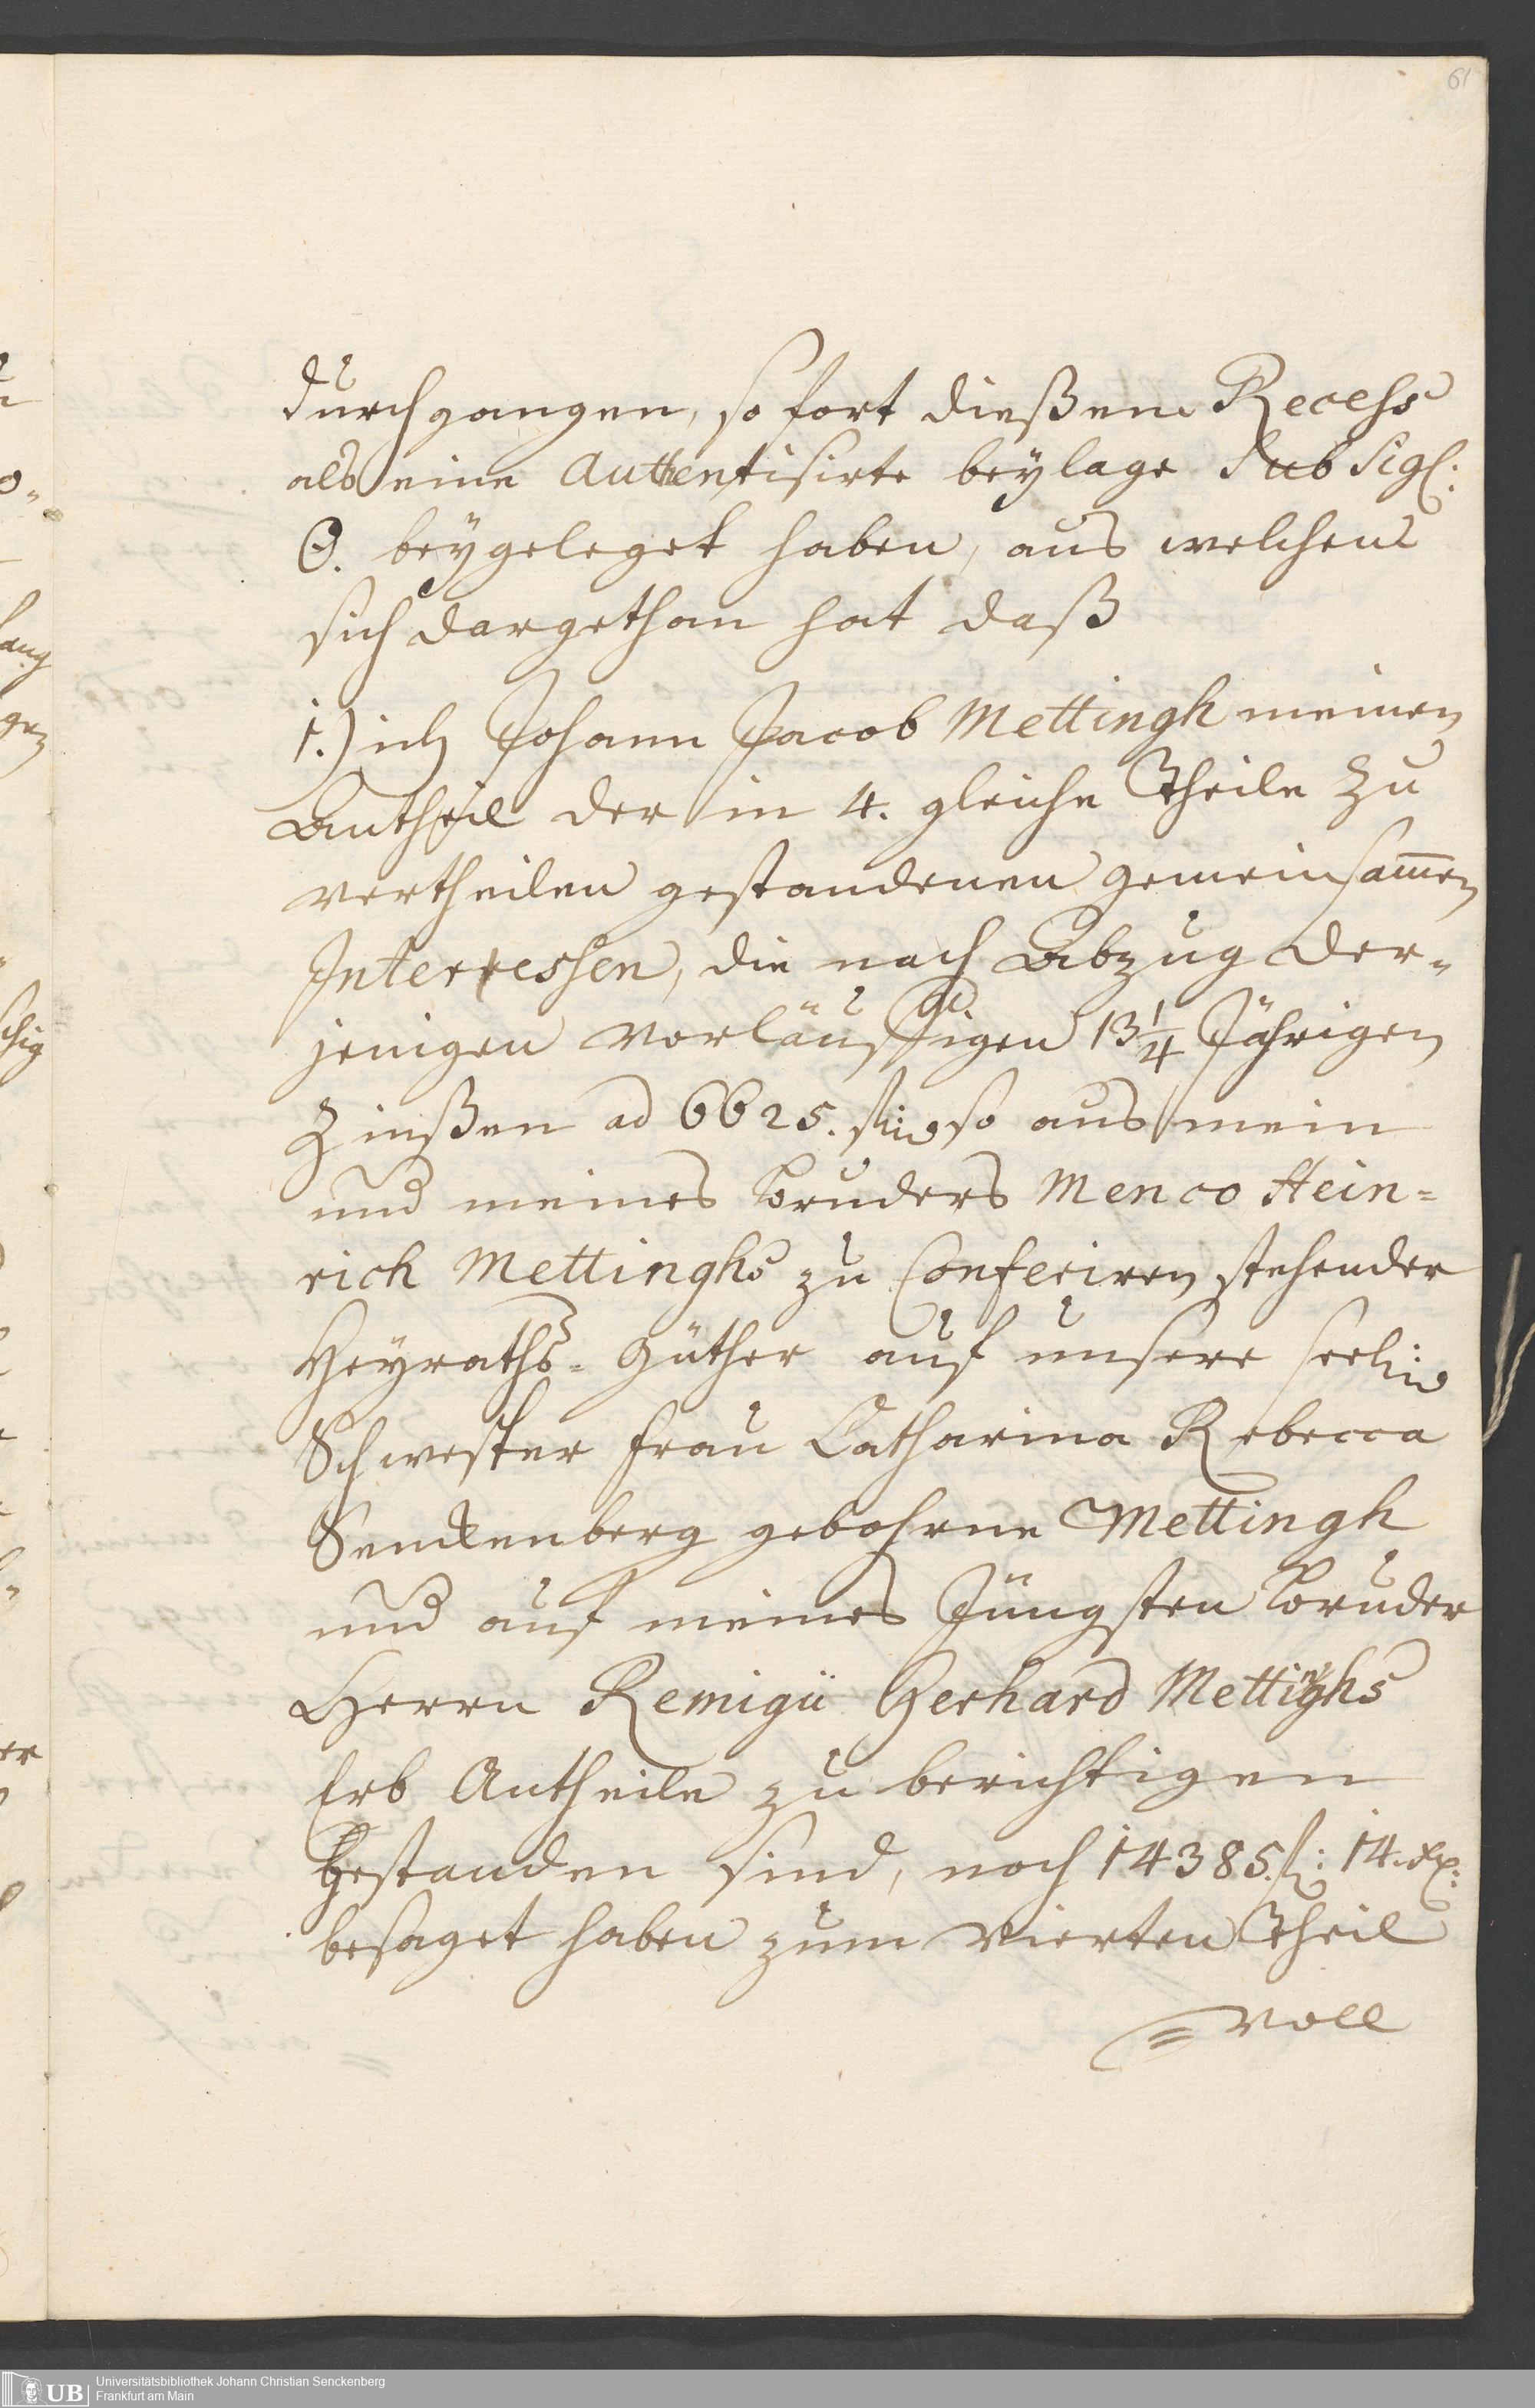 61
durchgangen, so fort dießem Recess
als eine Authentisirte beylage Sub Sigl:
O. beygeleget haben, aus welchem
sich dargethan hat daß
1.) ich Johann Jacob Mettingh meinen
Antheil der in 4. gleiche Theile zu
vertheilen gestandenen gemeinsam̅en
Interressen, die nach Abzug der-
jenigen vorläuffigen 13 1/4 Jährigen
Zinßen ad 6625. fl: so aus mein
und meines Bruders Menco Hein=
rich Mettinghs zu Conferiren stehender
Heyraths=Güther auf unsere seel:
Schwester Frau Catharina Rebecca
Senckenberg gebohrne Mettingh
und auf meines Jüngsten Bruder
Herrn Remigii Gerhard Mettinghs
Erb Antheile zu berichtigen
gestanden sind, noch 14385. fl: 14. xr:
besaget haben zum vierten Theil
= voll
UB
Universitätsbibliothek Johann Christian Senckenberg
Frankfurt am Main